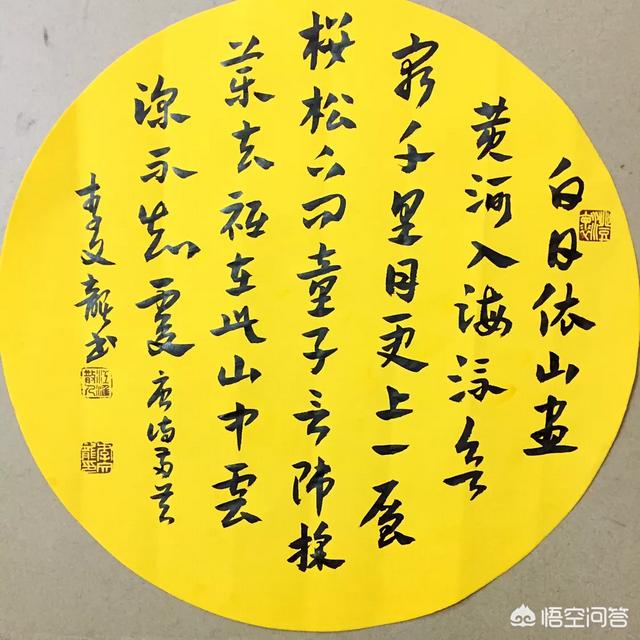 白日依山尽
黄河入海流欲
穷千里目更上一层
楼松下问童子言师採
药去祗在此山中雲
深不知處 唐诗两首
李文龙书
悟空问答